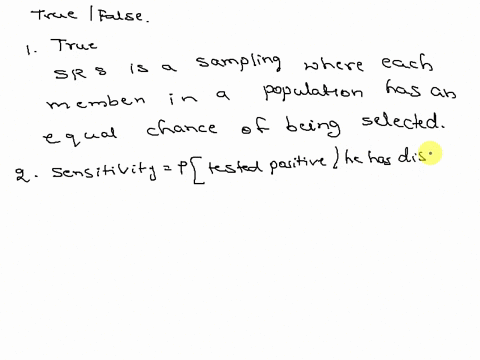 True / False.
1. True
SRS is a sampling where each
member in a population has an
equal chance of being selected.
2. Sensitivity = P[ tested positive / he has dis